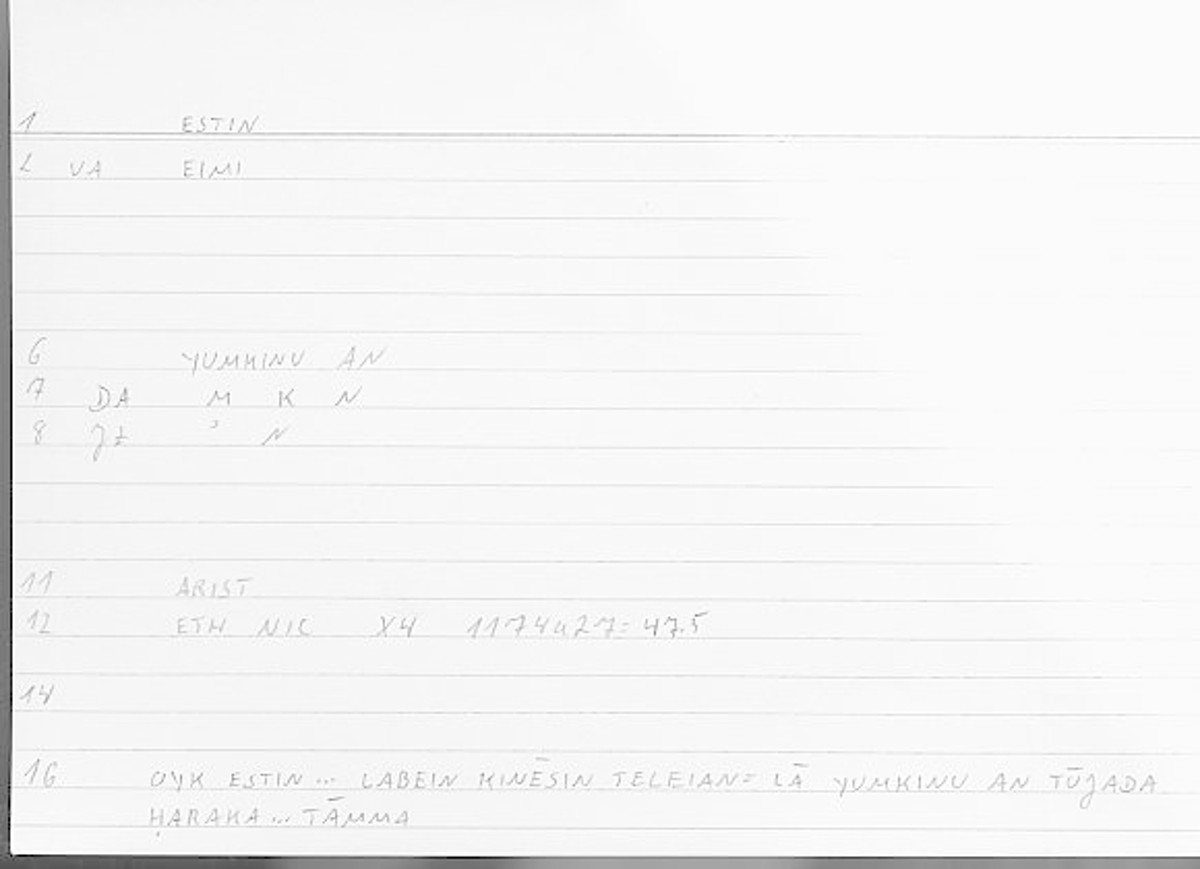 1 ESTIN
2 VA EIMI
6 YUMKINU AN
7 DA M K N
8 ʾ N
11 ARIST
12 ETH NIC X4 1174a27=47.5
14
16 OYK ESTIN... LABEIN KINĒSIN TELEIAN= LĀ YUMKINU AN TŪJADA
ḤARAKA... TĀMMA